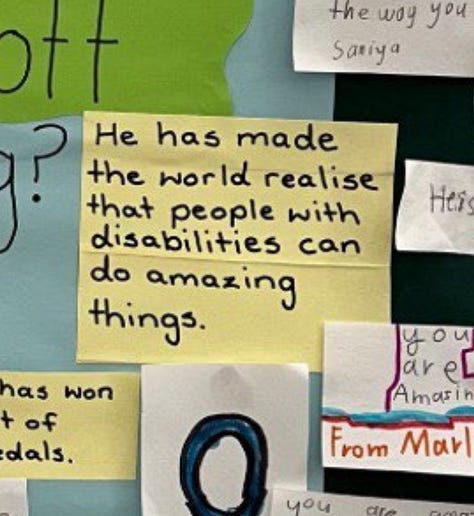 ott
the way you
Saniya
g?
He has made
the world realise
that people with
disabilities can
do amazing
things.
you
are
Amazin
From Marl
has won
t of
edals.
you are